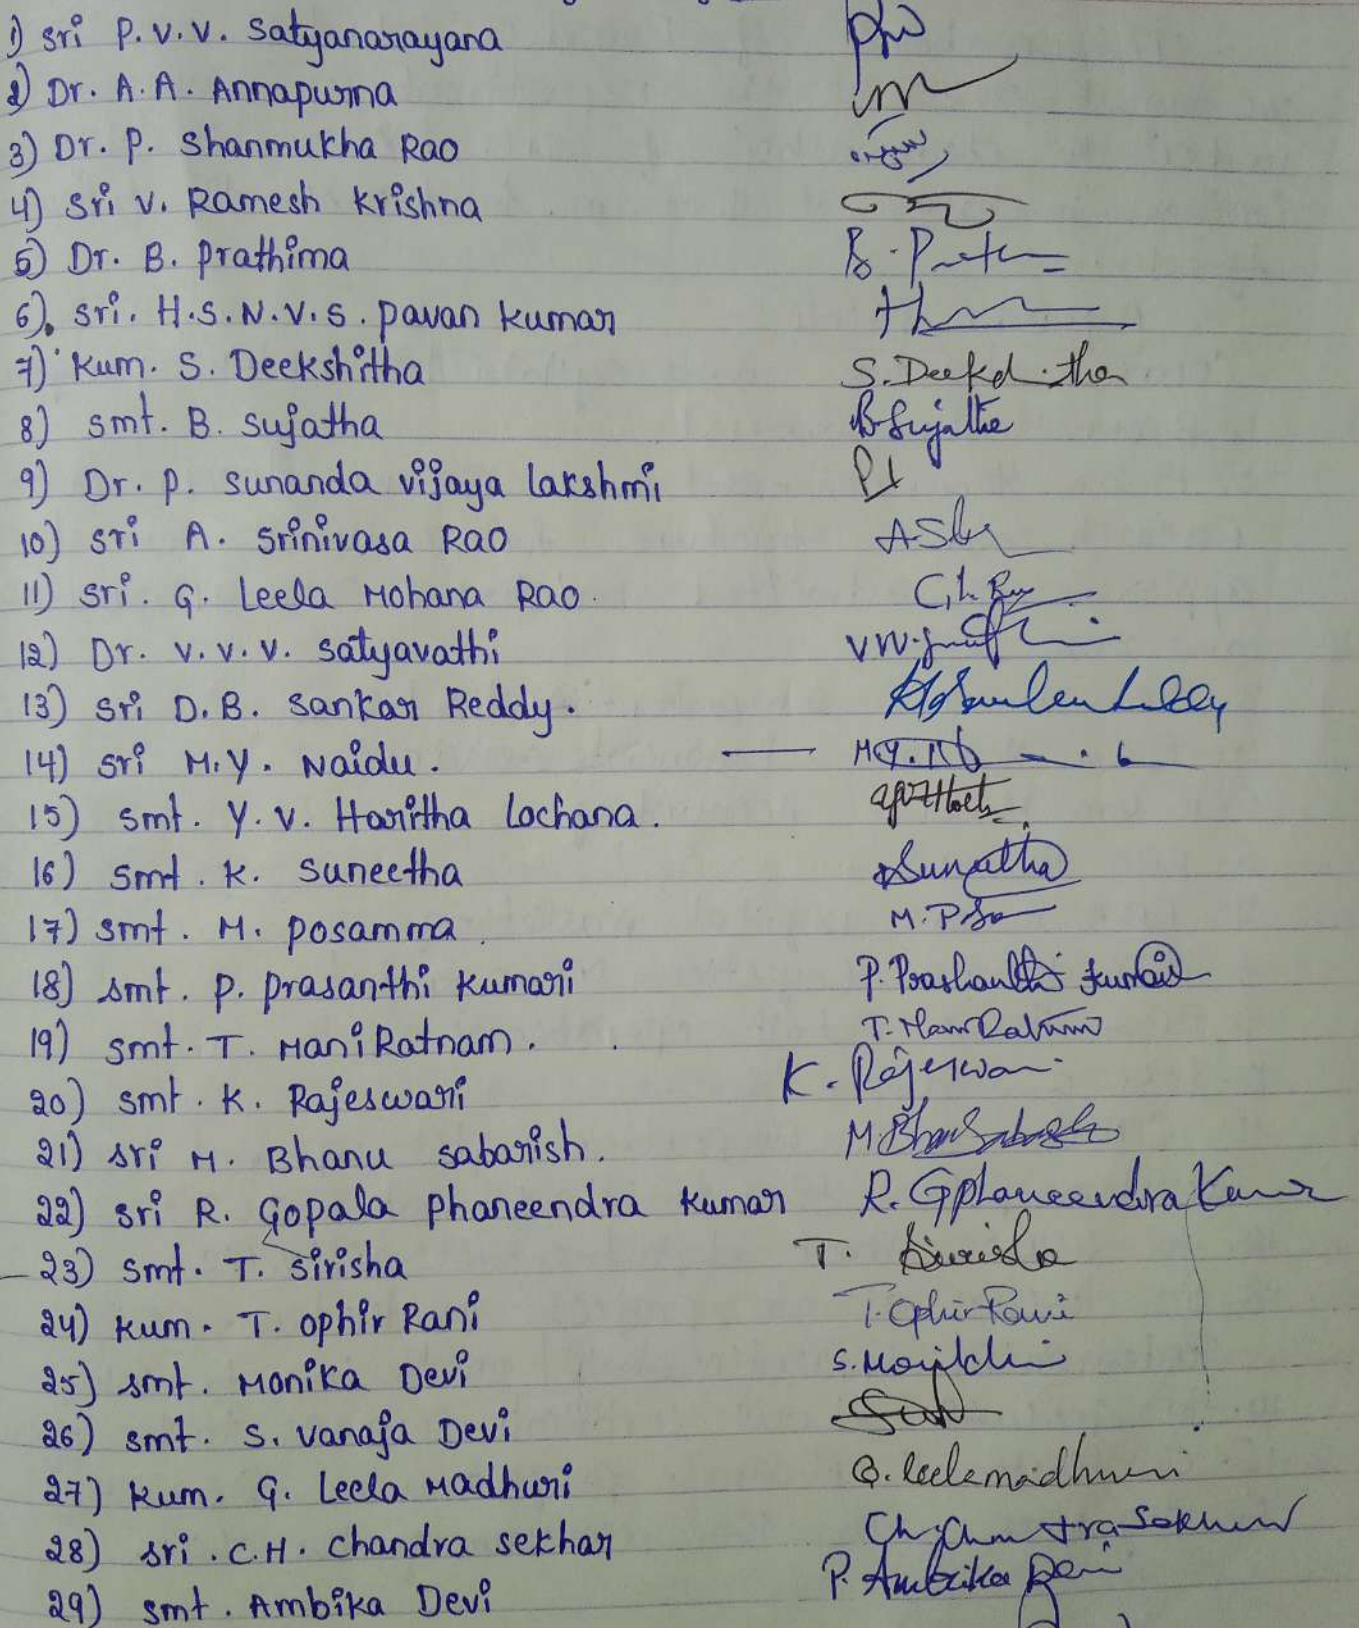 1) Sri P.V.V. Satyanarayana
2) Dr. A.A. Annapurna
3) Dr. P. Shanmukha Rao
4) Sri V. Ramesh Krishna
5) Dr. B. Prathima B. Prat
6) Sri. H.S.N.V.S. Pavan Kumar
7) Kum. S. Deekshitha S. Deekshitha
8) Smt. B. Sujatha B Sujatha
9) Dr. P. Sunanda Vijaya Lakshmi
10) Sri A. Srinivasa Rao
11) Sri. G. Leela Mohana Rao.
12) Dr. V.V.V. Satyavathi
13) Sri D.B. Sankar Reddy.
14) Sri M.Y. Naidu. —
15) Smt. Y.V. Haritha Lochana.
16) Smt. K. Suneetha Suneetha
17) Smt. M. Posamma
18) Smt. P. Prasanthi Kumari P. Prashanthi Kumari
19) Smt. T. Mani Ratnam. T. Mani Ratnam
20) Smt. K. Rajeswari K. Rajeswari
21) Sri M. Bhanu Sabarish. M Bhanu Sabarish
22) Sri R. Gopala Phaneendra Kumar R. G Phaneendra Kumar
23) Smt. T. Sirisha T. Sirisha
24) Kum. T. Ophir Rani T. Ophir Rani
25) Smt. Monika Devi
26) Smt. S. Vanaja Devi
27) Kum. G. Leela Madhuri G. Leela madhuri
28) Sri. C.H. Chandra Sekhar Ch. Chandra Sekhar
29) Smt. Ambika Devi P. Ambika Devi